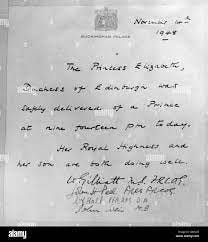 BUCKINGHAM PALACE
November 14th
1948
The Princess Elizabeth,
Duchess of Edinburgh was
safely delivered of a Prince
at nine fourteen pm today.
Her Royal Highness and
her son are both doing well.
W. Gilliatt M.D. FRCOG
John Weir M.B.
alamy